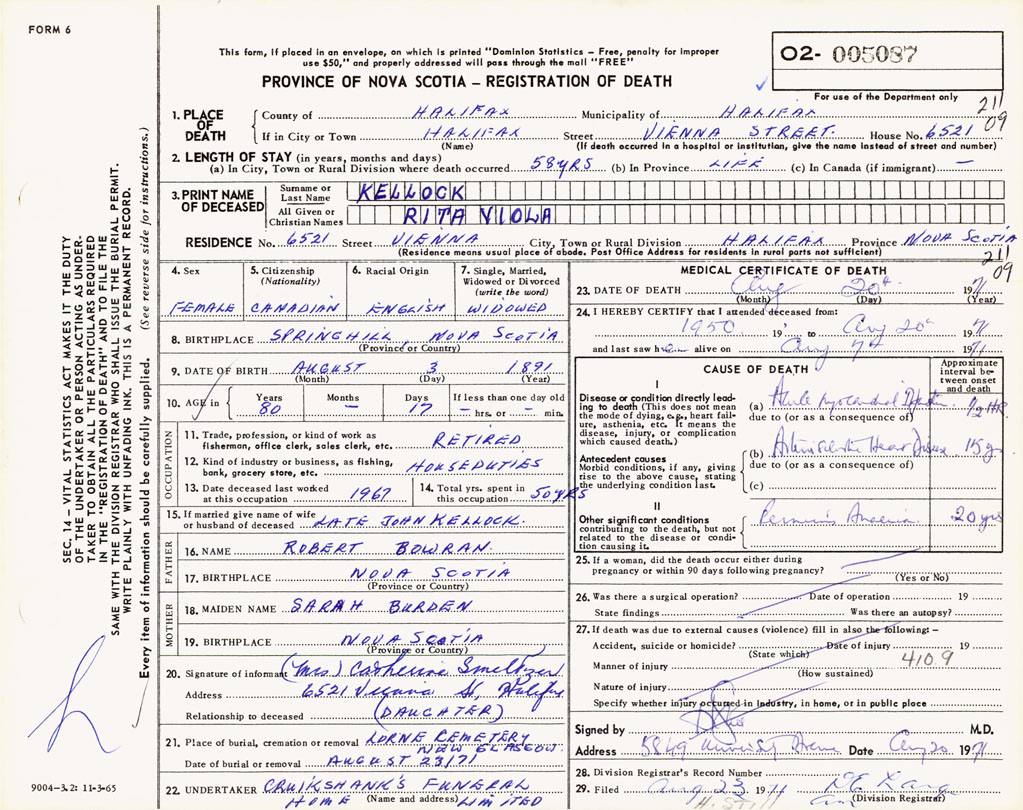 FORM 6
This form, if placed in an envelope, on which is printed "Dominion Statistics – Free, penalty for improper
use $50," and properly addressed will pass through the mail "FREE"
O2- 005087
PROVINCE OF NOVA SCOTIA – REGISTRATION OF DEATH
For use of the Department only
211
09
1. PLACE OF DEATH { County of HALIFAX Municipality of HALIFAX
If in City or Town HALIFAX Street VIENNA STREET. House No. 6521
(Name) (If death occurred in a hospital or institution, give the name instead of street and number)
2. LENGTH OF STAY (in years, months and days)
(a) In City, Town or Rural Division where death occurred 58 YRS (b) In Province LIFE (c) In Canada (if immigrant) –
3. PRINT NAME OF DECEASED
Surname or Last Name KELLOCK
All Given or Christian Names RITA VIOLA
RESIDENCE No. 6521 Street VIENNA City, Town or Rural Division HALIFAX Province NOVA SCOTIA
(Residence means usual place of abode. Post Office Address for residents in rural parts not sufficient)
211
09
4. Sex FEMALE
5. Citizenship (Nationality) CANADIAN
6. Racial Origin ENGLISH
7. Single, Married, Widowed or Divorced (write the word) WIDOWED
8. BIRTHPLACE SPRINGHILL, NOVA SCOTIA
(Province or Country)
9. DATE OF BIRTH AUGUST 3 1891
(Month) (Day) (Year)
10. AGE in { Years 80 Months – Days 17 If less than one day old – hrs. or – min.
OCCUPATION
11. Trade, profession, or kind of work as
fisherman, office clerk, sales clerk, etc. RETIRED
12. Kind of industry or business, as fishing,
bank, grocery store, etc. HOUSEDUTIES
13. Date deceased last worked
at this occupation 1967
14. Total yrs. spent in
this occupation 50 YRS
15. If married give name of wife
or husband of deceased LATE JOHN KELLOCK.
FATHER
16. NAME ROBERT BOWRAN.
17. BIRTHPLACE NOVA SCOTIA
(Province or Country)
MOTHER
18. MAIDEN NAME SARAH BURDEN
19. BIRTHPLACE NOVA SCOTIA
(Province or Country)
20. Signature of informant (Mrs) Catherine Smeltzer
Address 6521 Vienna St, Halifax
Relationship to deceased (DAUGHTER)
21. Place of burial, cremation or removal LORNE CEMETERY
NEW GLASGOW.
Date of burial or removal AUGUST 23/71
22. UNDERTAKER CRUIKSHANK'S FUNERAL
HOME (Name and address) LIMITED
MEDICAL CERTIFICATE OF DEATH
23. DATE OF DEATH Aug 20th 1971
(Month) (Day) (Year)
24. I HEREBY CERTIFY that I attended deceased from:
1950 19 to Aug 20th 1971
and last saw her alive on Aug 7th 1971
CAUSE OF DEATH
Approximate interval between onset and death
I
Disease or condition directly leading
to death (This does not mean
the mode of dying, e.g., heart failure,
asthenia, etc. It means the
disease, injury, or complication
which caused death.)
(a) Acute Myocardial 1/2 HR
due to (or as a consequence of)
Antecedent causes
Morbid conditions, if any, giving
rise to the above cause, stating
the underlying condition last.
(b) Heart Disease 15 yrs
due to (or as a consequence of)
(c)
II
Other significant conditions
contributing to the death, but not
related to the disease or condition
causing it.
Pernicious Anaemia 20 yrs
25. If a woman, did the death occur either during
pregnancy or within 90 days following pregnancy?
(Yes or No)
26. Was there a surgical operation? Date of operation 19
State findings Was there an autopsy?
27. If death was due to external causes (violence) fill in also the following: –
Accident, suicide or homicide? Date of injury 19
(State which) 410.9
Manner of injury
(How sustained)
Nature of injury
Specify whether injury occurred in industry, in home, or in public place
Signed by M.D.
Address 5849 University Avenue Date Aug 20 1971
28. Division Registrar's Record Number
29. Filed Aug 23 1971
(Division Registrar)
SEC. 14 – VITAL STATISTICS ACT MAKES IT THE DUTY
OF THE UNDERTAKER OR PERSON ACTING AS UNDERTAKER
TO OBTAIN ALL THE PARTICULARS REQUIRED
IN THE "REGISTRATION OF DEATH" AND TO FILE THE
SAME WITH THE DIVISION REGISTRAR WHO SHALL ISSUE THE BURIAL PERMIT.
WRITE PLAINLY WITH UNFADING INK. THIS IS A PERMANENT RECORD.
Every item of information should be carefully supplied. (See reverse side for instructions.)
9004–3.2: 11-3-65